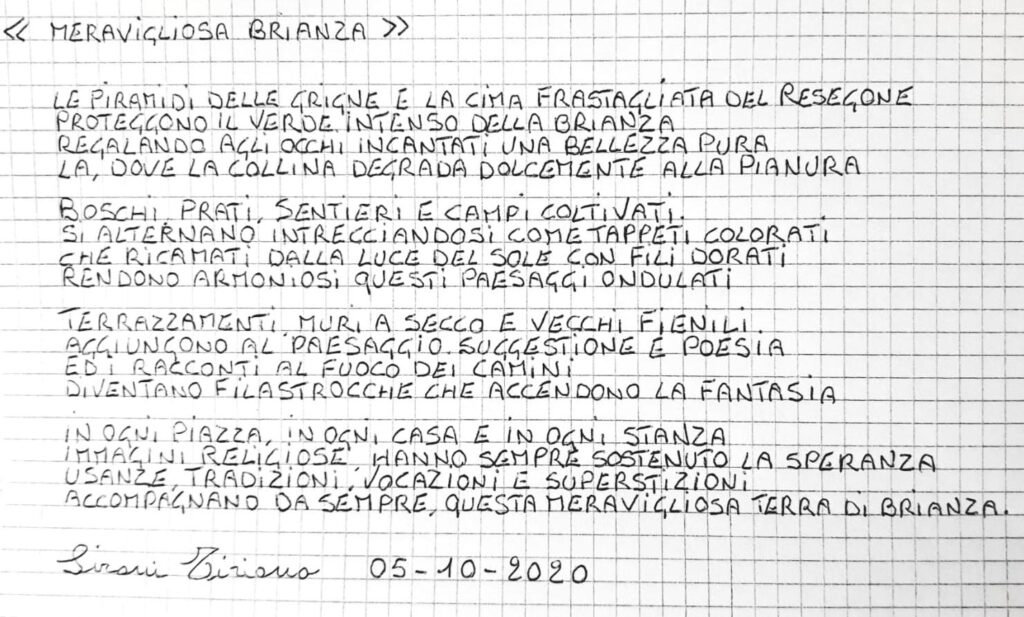 << MERAVIGLIOSA BRIANZA >>
LE PIRAMIDI DELLE GRIGNE E LA CIMA FRASTAGLIATA DEL RESEGONE
PROTEGGONO IL VERDE INTENSO DELLA BRIANZA
REGALANDO AGLI OCCHI INCANTATI UNA BELLEZZA PURA
LA, DOVE LA COLLINA DEGRADA DOLCEMENTE ALLA PIANURA
BOSCHI, PRATI, SENTIERI E CAMPI COLTIVATI,
SI ALTERNANO INTRECCIANDOSI COME TAPPETI COLORATI
CHE RICAMATI DALLA LUCE DEL SOLE CON FILI DORATI
RENDONO ARMONIOSI QUESTI PAESAGGI ONDULATI
TERRAZZAMENTI, MURI A SECCO E VECCHI FIENILI,
AGGIUNGONO AL PAESAGGIO, SUGGESTIONE E POESIA
ED I RACCONTI AL FUOCO DEI CAMINI
DIVENTANO FILASTROCCHE CHE ACCENDONO LA FANTASIA
IN OGNI PIAZZA, IN OGNI CASA E IN OGNI STANZA
IMMAGINI RELIGIOSE, HANNO SEMPRE SOSTENUTO LA SPERANZA
USANZE, TRADIZIONI, VOCAZIONI E SUPERSTIZIONI
ACCOMPAGNANO DA SEMPRE, QUESTA MERAVIGLIOSA TERRA DI BRIANZA.
05-10-2020